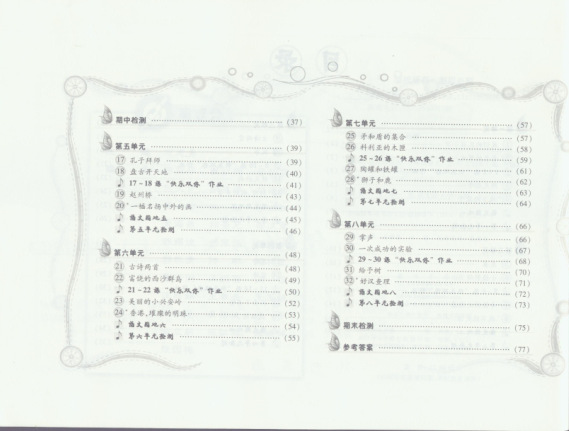 期中检测 (37)
第五单元 (39)
17 孔子拜师 (39)
18 盘古开天地 (40)
17~18课“快乐双休”作业 (41)
19 赵州桥 (43)
20* 一幅名扬中外的画 (44)
语文园地五 (45)
第五单元检测 (46)
第六单元 (48)
21 古诗两首 (48)
22 富饶的西沙群岛 (49)
21~22课“快乐双休”作业 (50)
23 美丽的小兴安岭 (52)
24* 香港,璀璨的明珠 (53)
语文园地六 (54)
第六单元检测 (55)
第七单元 (57)
25 矛和盾的集合 (57)
26 科利亚的木匣 (58)
25~26课“快乐双休”作业 (59)
27 陶罐和铁罐 (61)
28* 狮子和鹿 (62)
语文园地七 (63)
第七单元检测 (64)
第八单元 (66)
29 掌声 (66)
30 一次成功的实验 (67)
29~30课“快乐双休”作业 (68)
31 给予树 (70)
32* 好汉查理 (71)
语文园地八 (72)
第八单元检测 (73)
期末检测 (75)
参考答案 (77)